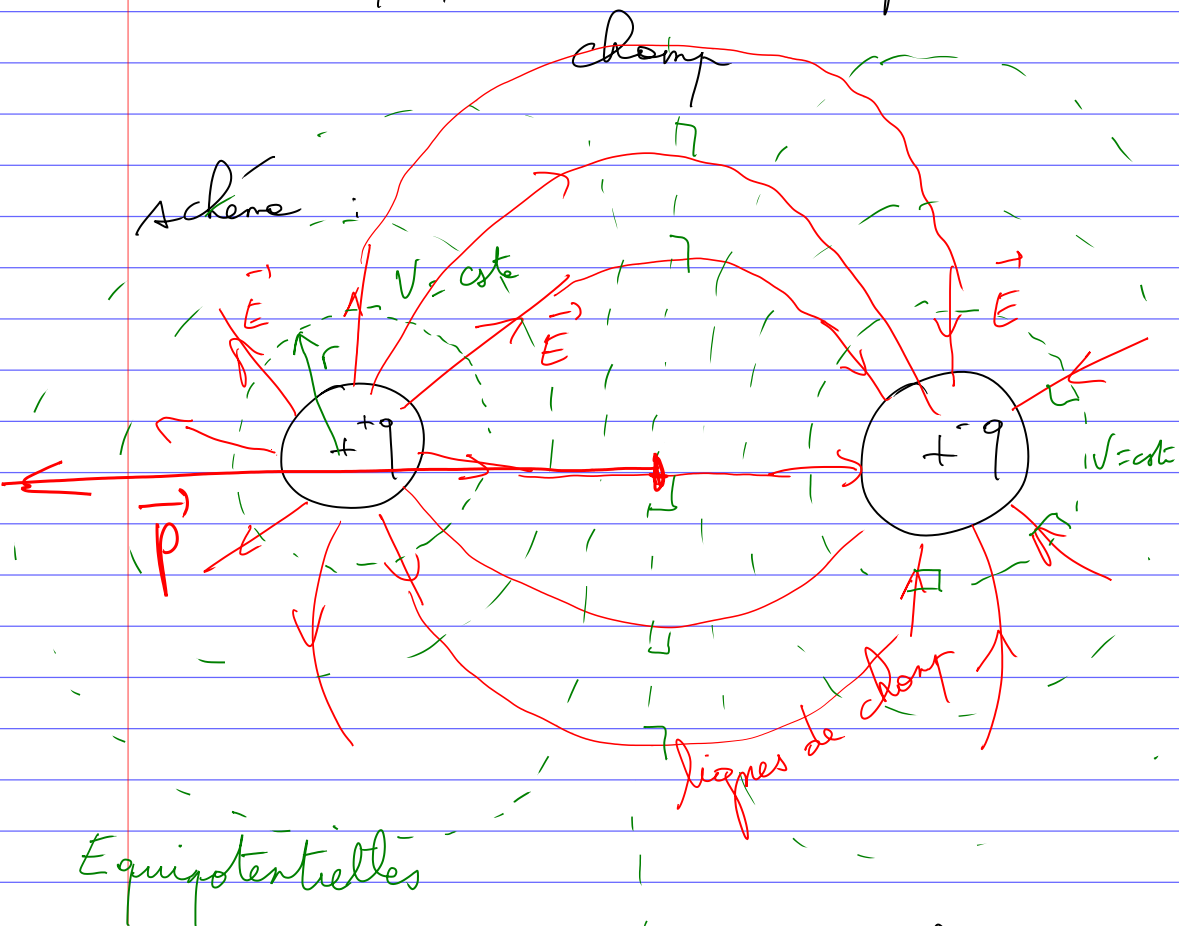 champ
schéma :
E
V = cste
E
r
E
+ +q
+ -q
V = cste
p
lignes de champ
Equipotentielles